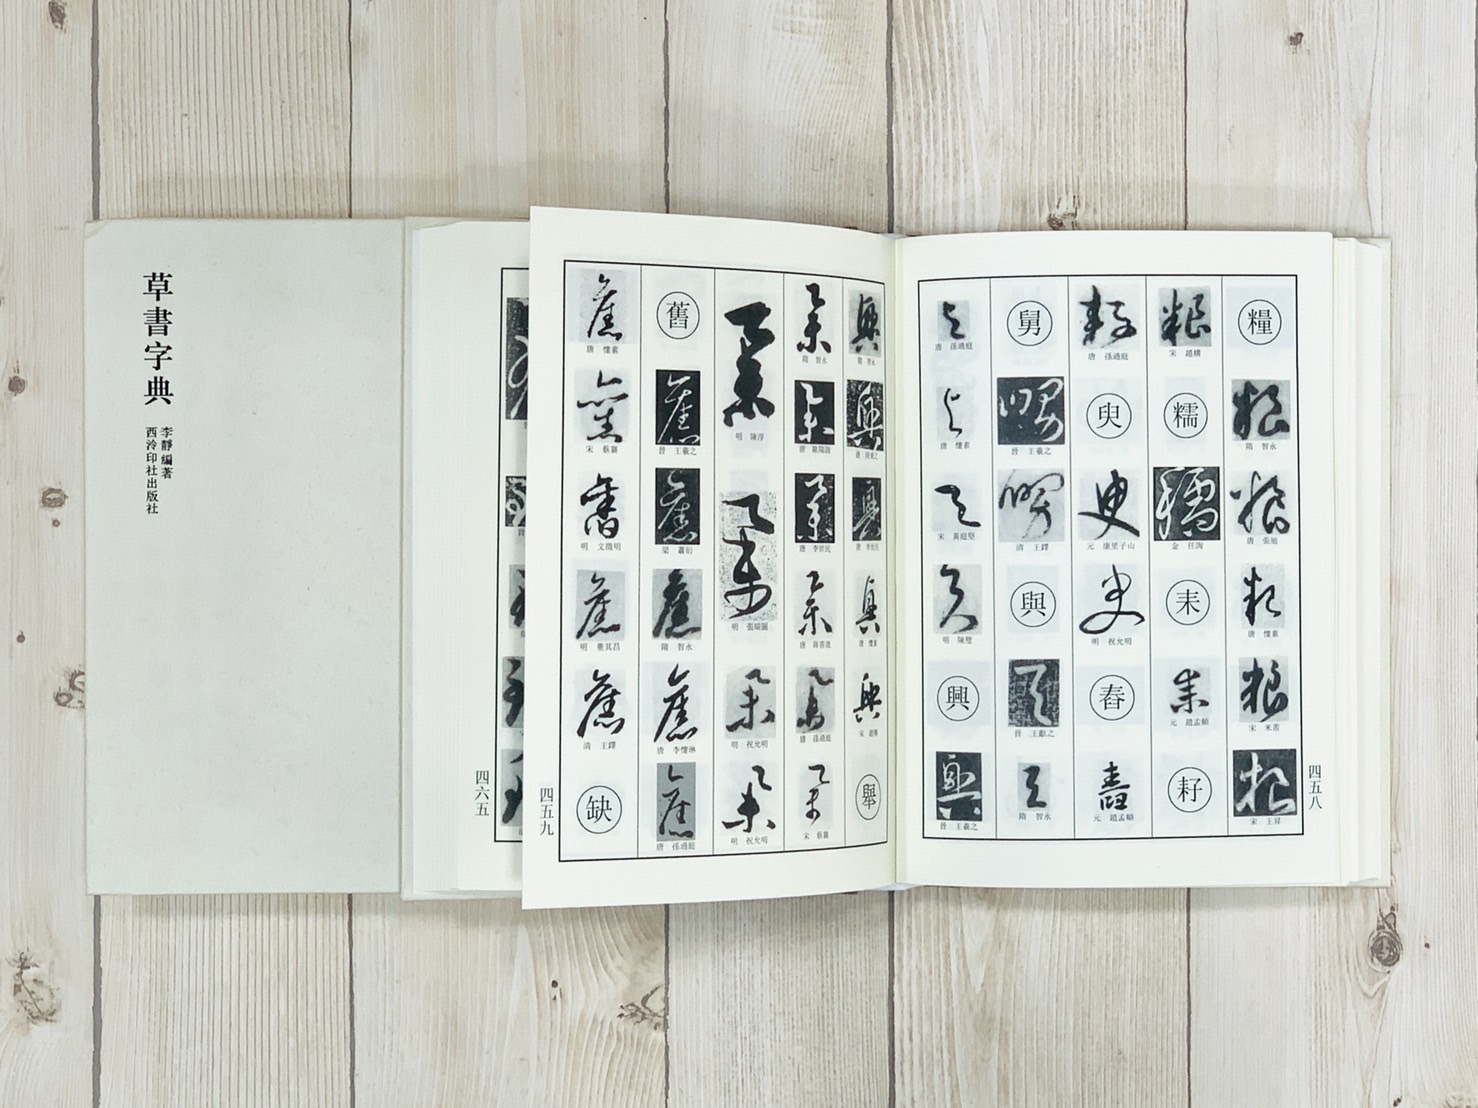 草書字典
李靜 編著
西泠印社出版社
四五八
糧
隋 智永
唐 張旭
唐 懷素
宋 米芾
宋 王昇
宋 趙構
糯
金 任詢
耒
元 趙孟頫
耔
唐 孫過庭
臾
元 康里子山
明 祝允明
舂
元 趙孟頫
舅
晉 王羲之
清 王鐸
與
晉 王獻之
隋 智永
唐 孫過庭
唐 懷素
宋 黃庭堅
明 陳璧
興
晉 王羲之
隋 智永
唐 陸柬之
唐 李世民
唐 懷素
宋 趙構
舉
隋 智永
唐 歐陽詢
唐 李世民
唐 孫過庭
宋 蔡襄
明 陳淳
明 張瑞圖
明 祝允明
明 祝允明
舊
晉 王羲之
梁 蕭衍
隋 智永
唐 李懷琳
唐 孫過庭
唐 懷素
宋 蔡襄
明 文徵明
明 董其昌
清 王鐸
缺
四五九
四六五